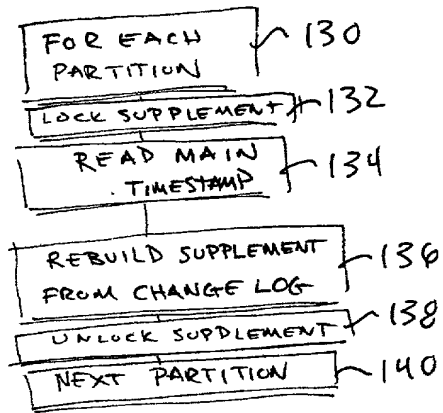 FOR EACH 130
PARTITION
LOCK SUPPLEMENT 132
READ MAIN 134
. TIMESTAMP
REBUILD SUPPLEMENT 136
FROM CHANGE LOG
UNLOCK SUPPLEMENT 138
NEXT PARTITION 140